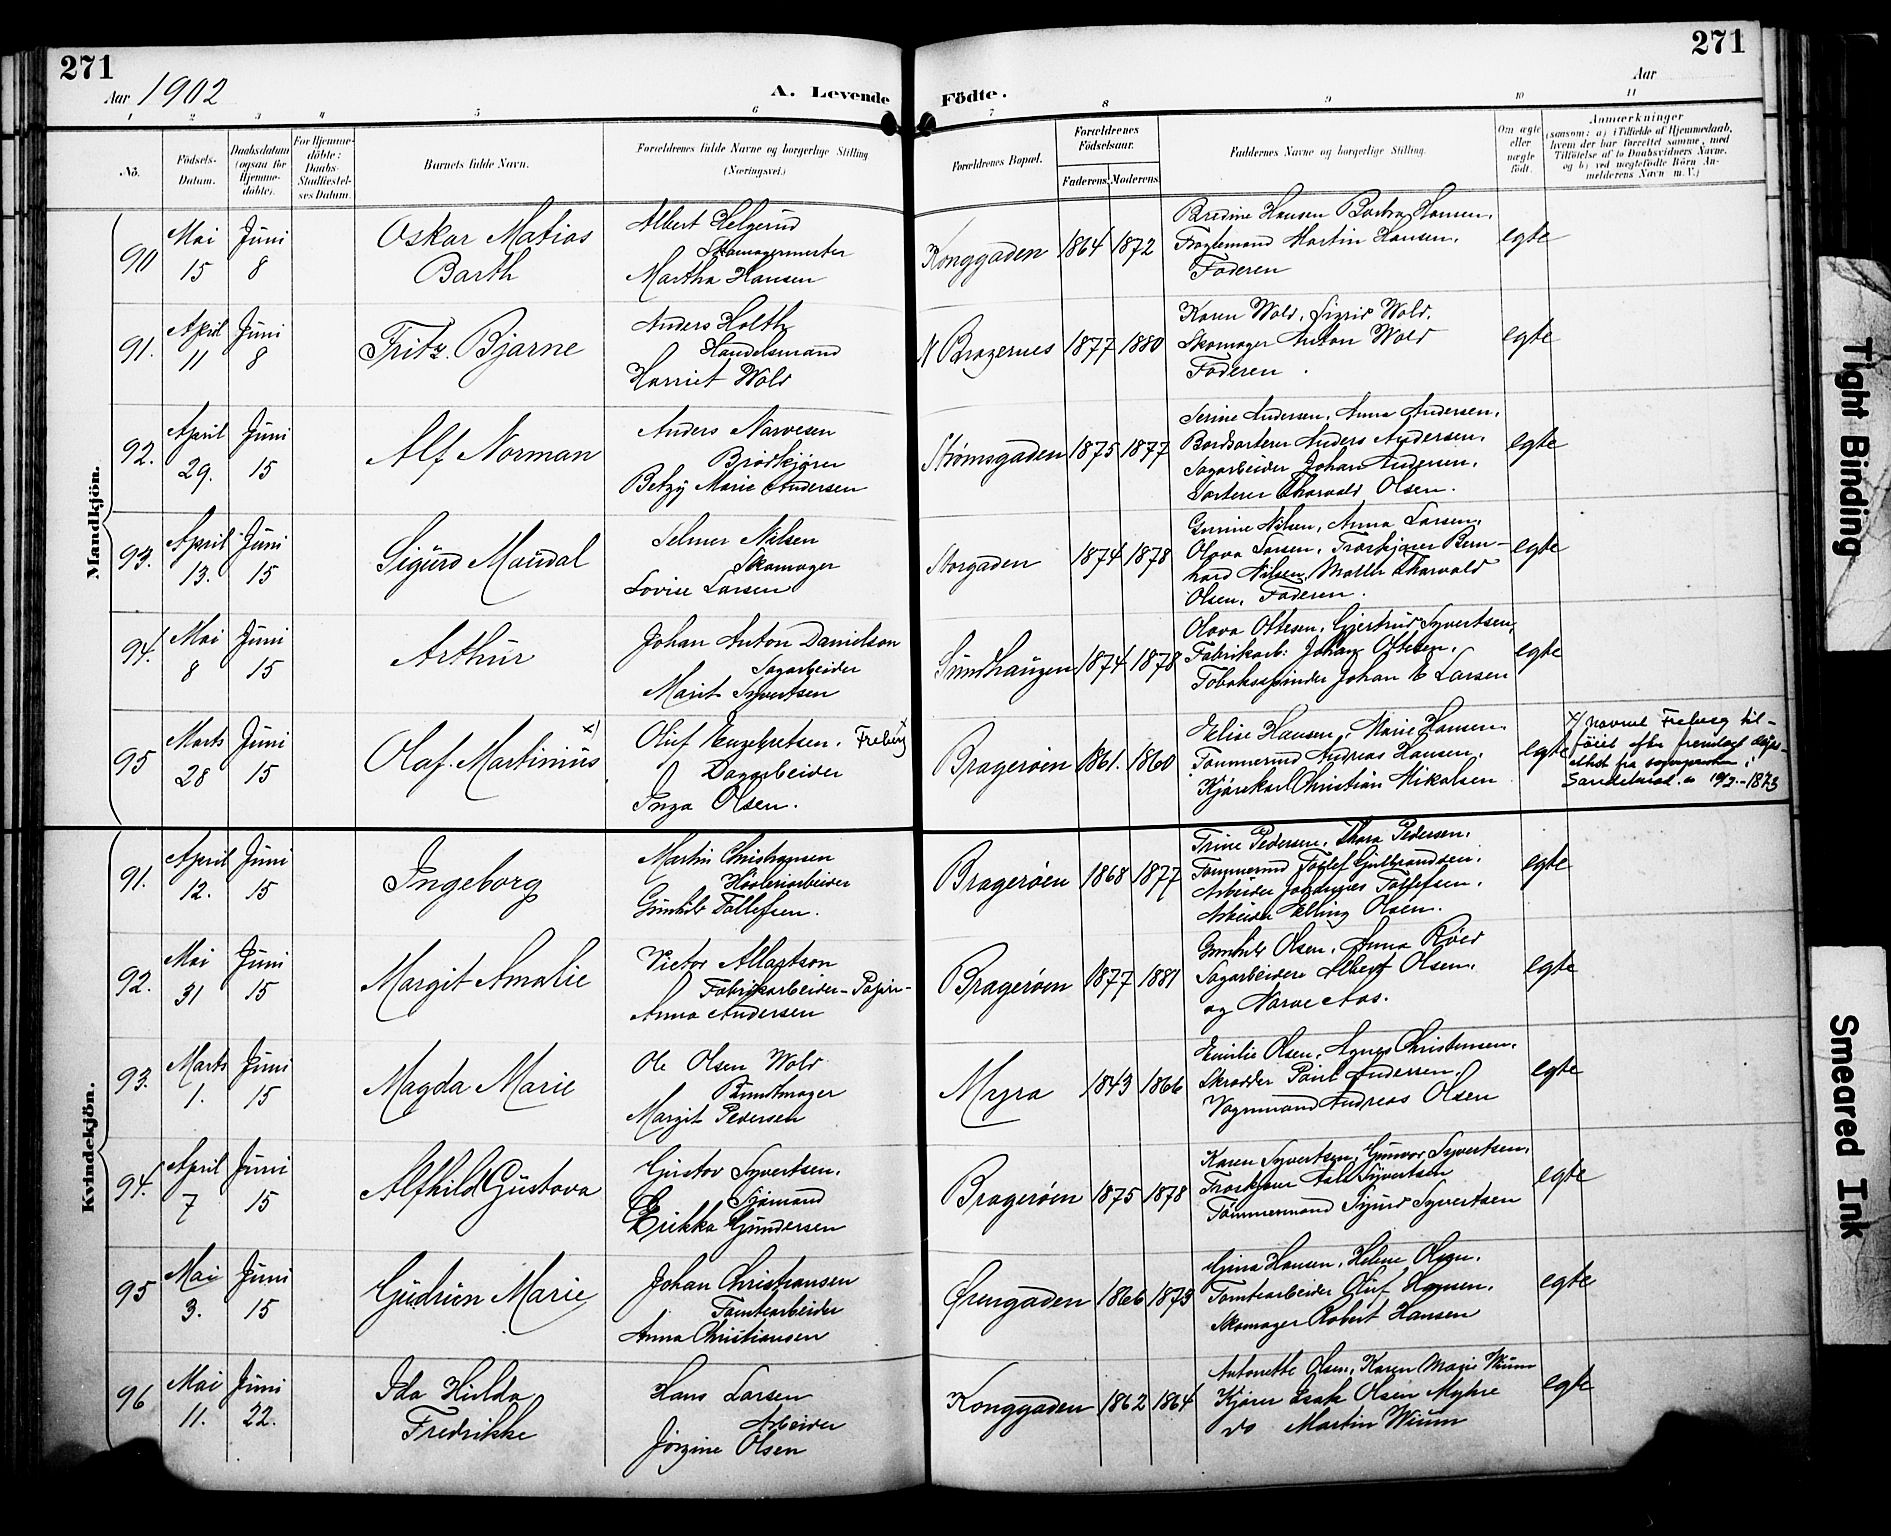 271
271
Aar 1902
A. Levende
Födte.
Aar
1 2 3 4 5 6 7 8 9 10 11
Nö.
Födsels-
Datum.
Daabsdatum
(ogsaa for
Hjemme-
döbte).
For Hjemme-
döbte:
Daabs-
Stadfæstel-
ses Datum.
Barnets fulde Navn.
Forældrenes fulde Navne og borgerlige Stilling
(Næringsvei.)
Forældrenes Bopæl.
Forældrenes
Födselsaar.
Faderens Moderens
Faddernes Navne og borgerlige Stilling.
Om ægte
eller
uægte
födt.
Anmærkninger
(saasom: a) i Tilfælde af Hjemmedaab,
hvem der har forrettet samme, med
Tilföielse af to Daabsvidners Navne,
og b) ved uægtefödte Börn An-
melderens Navn m. V.)
Mandkjön.
90
Mai
15
Juni
8
Oskar Matias
Barth
Albert Helgerud
Skomagermester
Martha Hansen
Konggaden 1864 1872
Bredine Hansen Barbra Hansen.
Fragtemand Martin Hansen.
Faderen
egte
91.
April
11
Juni
8
Fritz Bjarne
Anders Holth
Handelsmand
Harriet Wold
N Bragernes 1877 1880
Karen Wold, Sigrid Wold,
Skomager Anton Wold
Faderen.
egte
92.
April
29.
Juni
15
Alf Norman
Anders Narvesen
Brødkjører
Betzy Marie Andersen
Strømsgaden 1875 1877
Serine Andersen, Anna Andersen,
Bordsorterer Anders Andersen,
Sagarbeider Johan Andersen,
Sorterer Thorvald Olsen.
egte
93.
April
13.
Juni
15
Sigurd Maudal
Selmer Nilsen
Skomager
Lovise Larsen
Storgaden 1874 1878
Gurine Nilsen, Anna Larsen,
Olava Larsen, Træskjører Bern-
hard Nilsen, Møller Thorvald
Olsen, Faderen.
egte
94.
Mai
8
Juni
15
Arthur
Johan Anton Danielson
Sagarbeider
Marit Syvertsen
Sundhaugen 1874 1878
Olava Ottesen, Gjertrud Syvertsen,
Fabrikarb: Johan Ottesen,
Tobaksspinder Johan E Larsen
egte
95
Marts
28
Juni
15
Olaf Martinius x)
Oluf Engebretsen. Freberg x
Dagarbeider
Inga Olsen.
Bragerøen 1861. 1860
Elise Hansen, Marie Hansen
Tømmermd Andreas Hansen,
Kjørekarl Christian Mikalsen
egte
x) Navnet Freberg til-
føiet efter fremlagt dåps-
attest fra sognepresten i
Sandefjord
Kvindekjön.
91.
April
12.
Juni
15
Ingeborg
Martin Christiansen
Høvleriarbeider
Gunhild Tollefsen.
Bragerøen 1868 1877
Trine Pedersen, Thora Pedersen,
Tømmermd Tollef Gulbrandsen,
Arbeider Johannes Tollefsen,
Arbeider Elling Olsen.
egte
92.
Mai
31
Juni
15
Margit Amalie
Victor Allartson
Fabrikarbeider - Papir-
Anna Andersen
Bragerøen 1877 1881
Gunhild Olsen, Anna Røed
Sagarbeidere Albert Olsen,
og Narve Aas.
egte
93.
Marts
1.
Juni
15
Magda Marie
Ole Olsen Wold
Buntmager
Margit Pedersen
Myra 1843 1866
Emilie Olsen, Agnes Christensen,
Skrædder Paul Andersen,
Vognmand Andreas Olsen
egte
94.
April
7
Juni
15
Alfhild Gustava
Gustav Syvertsen.
Sjømand
Erikka Gundersen
Bragerøen 1875 1878
Karen Syvertsen, Gunvor Syvertsen,
Træskjører Aale Syvertsen
Tømmermand Sigurd Syvertsen
egte
95
Mai
3.
Juni
15
Gudrun Marie
Johan Christiansen
Tomtearbeider
Anna Christiansen
Ørengaden 1866 1873
Gina Hansen, Helene Olsen.
Tomtearbeider Oluf Hansen,
Skomager Robert Hansen
egte
96
Mai
11.
Juni
22.
Ida Hulda
Fredrikke
Hans Larsen
Arbeider
Jørgine Olsen
Konggaden 1862 1864
Antonette Olsen, Karen Marie Wium
Kjører Esak Olsen Myhre
do Martin Wium
egte
Tight Binding
Smeared Ink